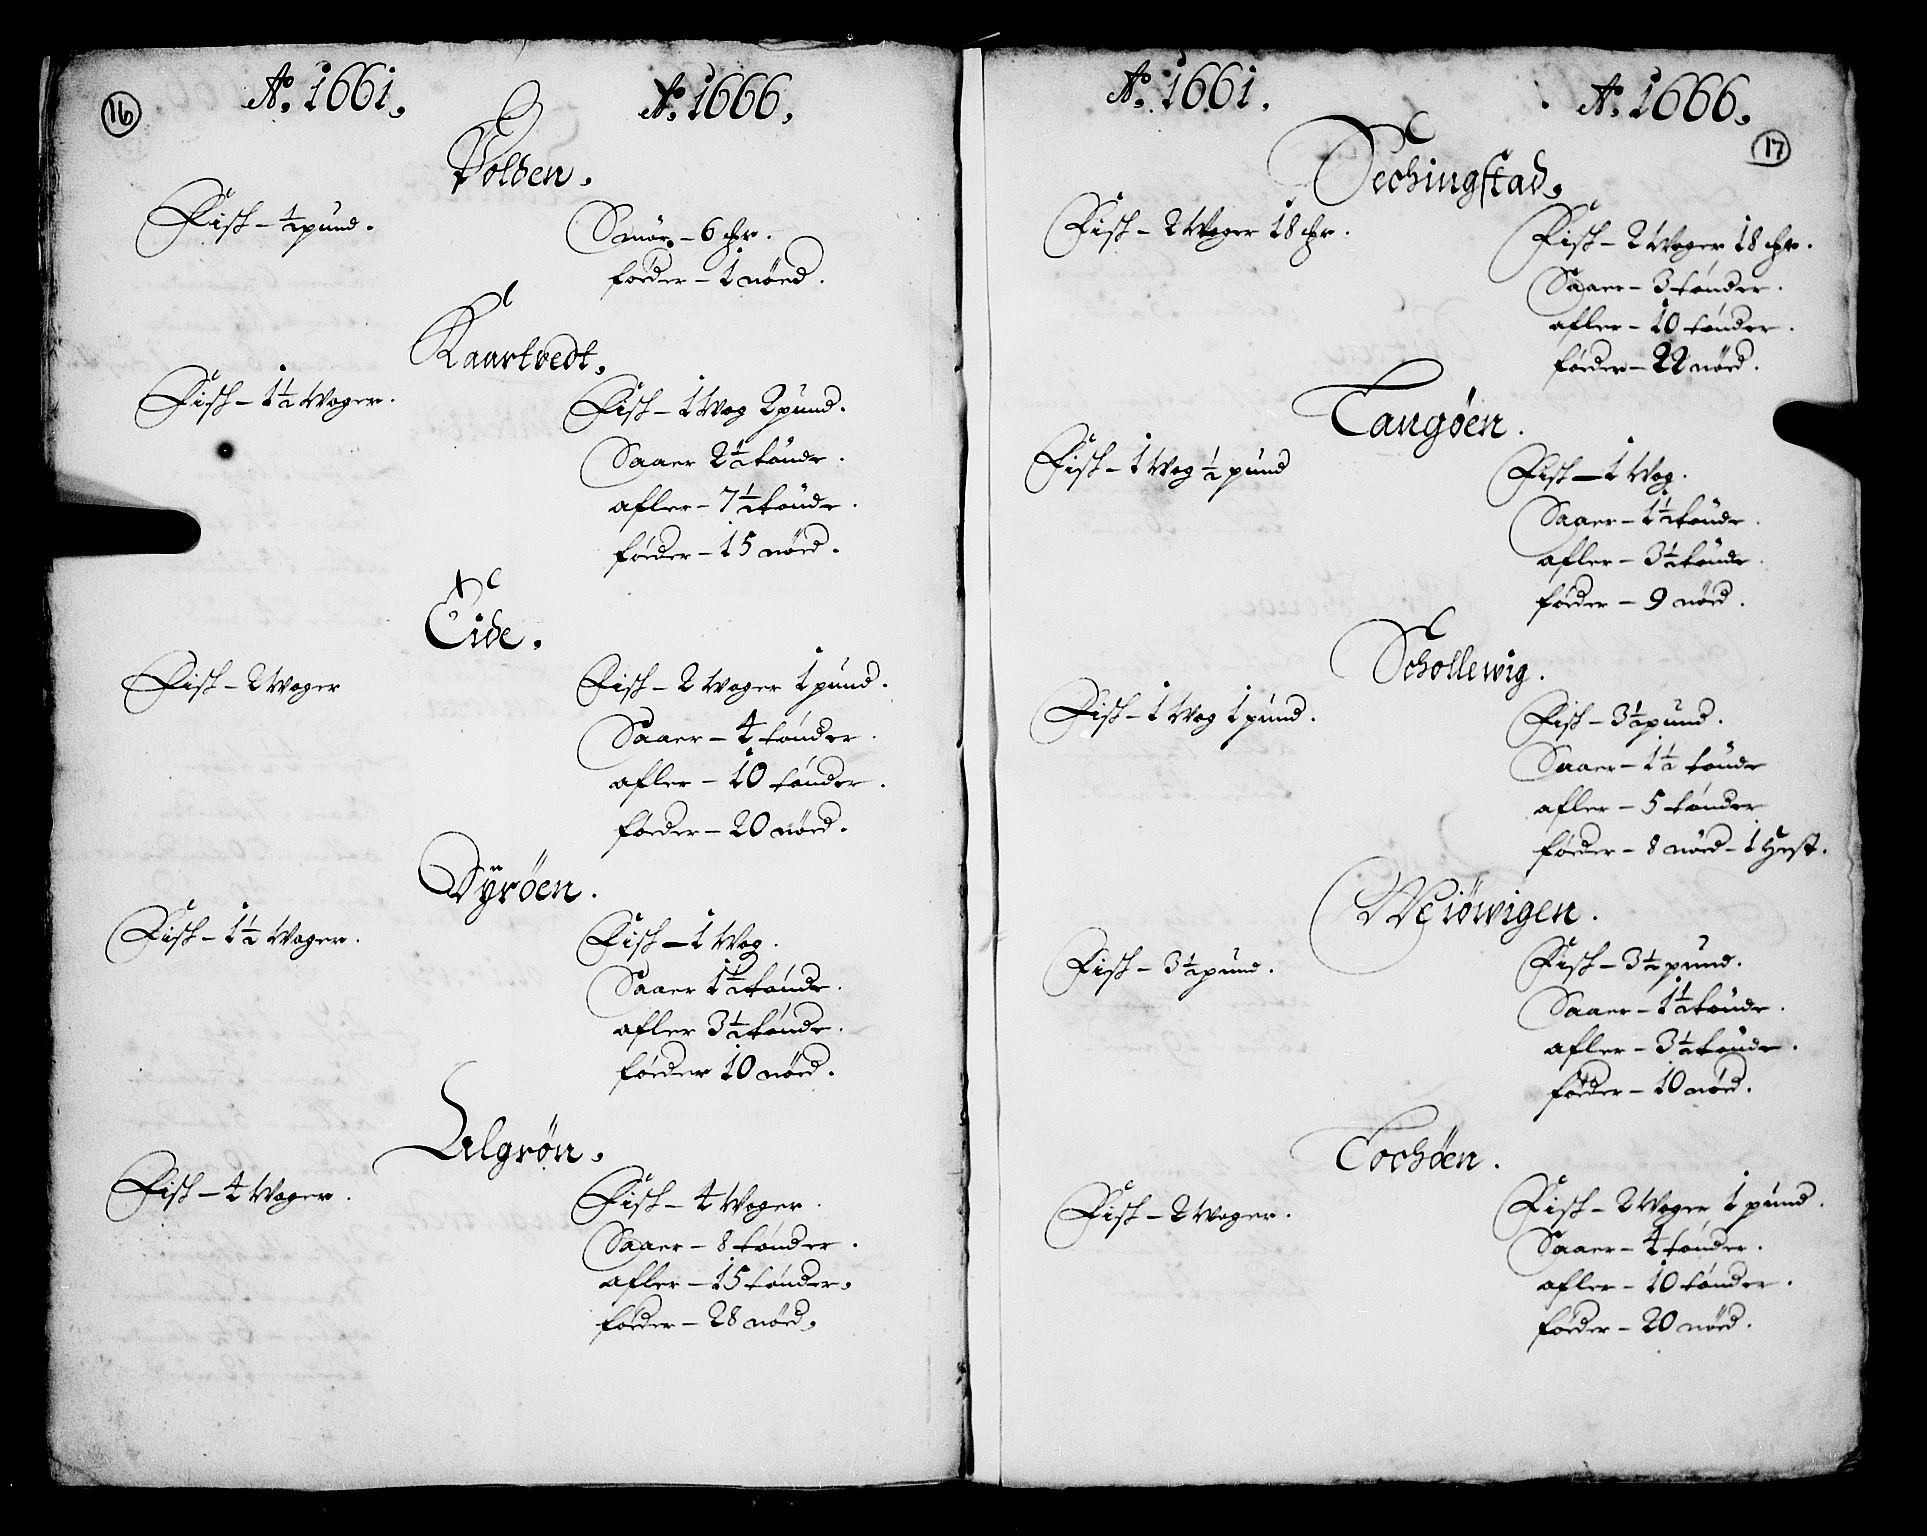 16
Aº. 1661. Aº. 1666.
Volden.
Fisk – ½ pund. Smör – 6 ℔r.
föeder – 1 nöed.
Kaartvedt.
Fisk – 1½ Woger. Fisk – 1 Wog 2 pund.
Saaer 2½ tönde.
afler – 7½ tönde.
föeder – 15 nöed.
Eide.
Fisk – 2 Woger Fisk – 2 Woger 1 pund.
Saaer – 4 tönder.
afler – 10 tönder.
föeder – 20 nöed.
Dyröen.
Fisk – 1½ Woger. Fisk – 1 Wog.
Saaer 1½ tönde.
afler 3½ tönde.
föeder 10 nöed.
Algrön.
Fisk – 4 Woger. Fisk – 4 Woger.
Saaer – 8 tönder.
afler – 15 tönder.
föeder – 28 nöed.
17
Aº. 1661. Aº. 1666.
Techingstad.
Fisk – 2 Woger 18 ℔r. Fisk – 2 Woger 18 ℔r.
Saaer – 3 tönder.
afler – 10 tönder.
föeder – 22 nöed.
Tangöen.
Fisk – 1 Wog ½ pund Fisk – 1 Wog.
Saaer – 1½ tönde.
afler – 3½ tönde.
föeder – 9 nöed.
Schollewig.
Fisk – 1 Wog 1 pund. Fisk – 3½ pund.
Saaer – 1½ tönde
afler – 5 tönder
föeder – 8 nöed – 1 Hest.
Weiöwigen.
Fisk – 3½ pund. Fisk – 3½ pund.
Saaer – 1½ tönde.
afler – 3½ tönde.
föeder – 10 nöed.
Tochöen.
Fisk – 2 Woger. Fisk – 2 Woger 1 pund.
Saaer – 4 tönder.
afler – 10 tönder.
föeder – 20 nöed.